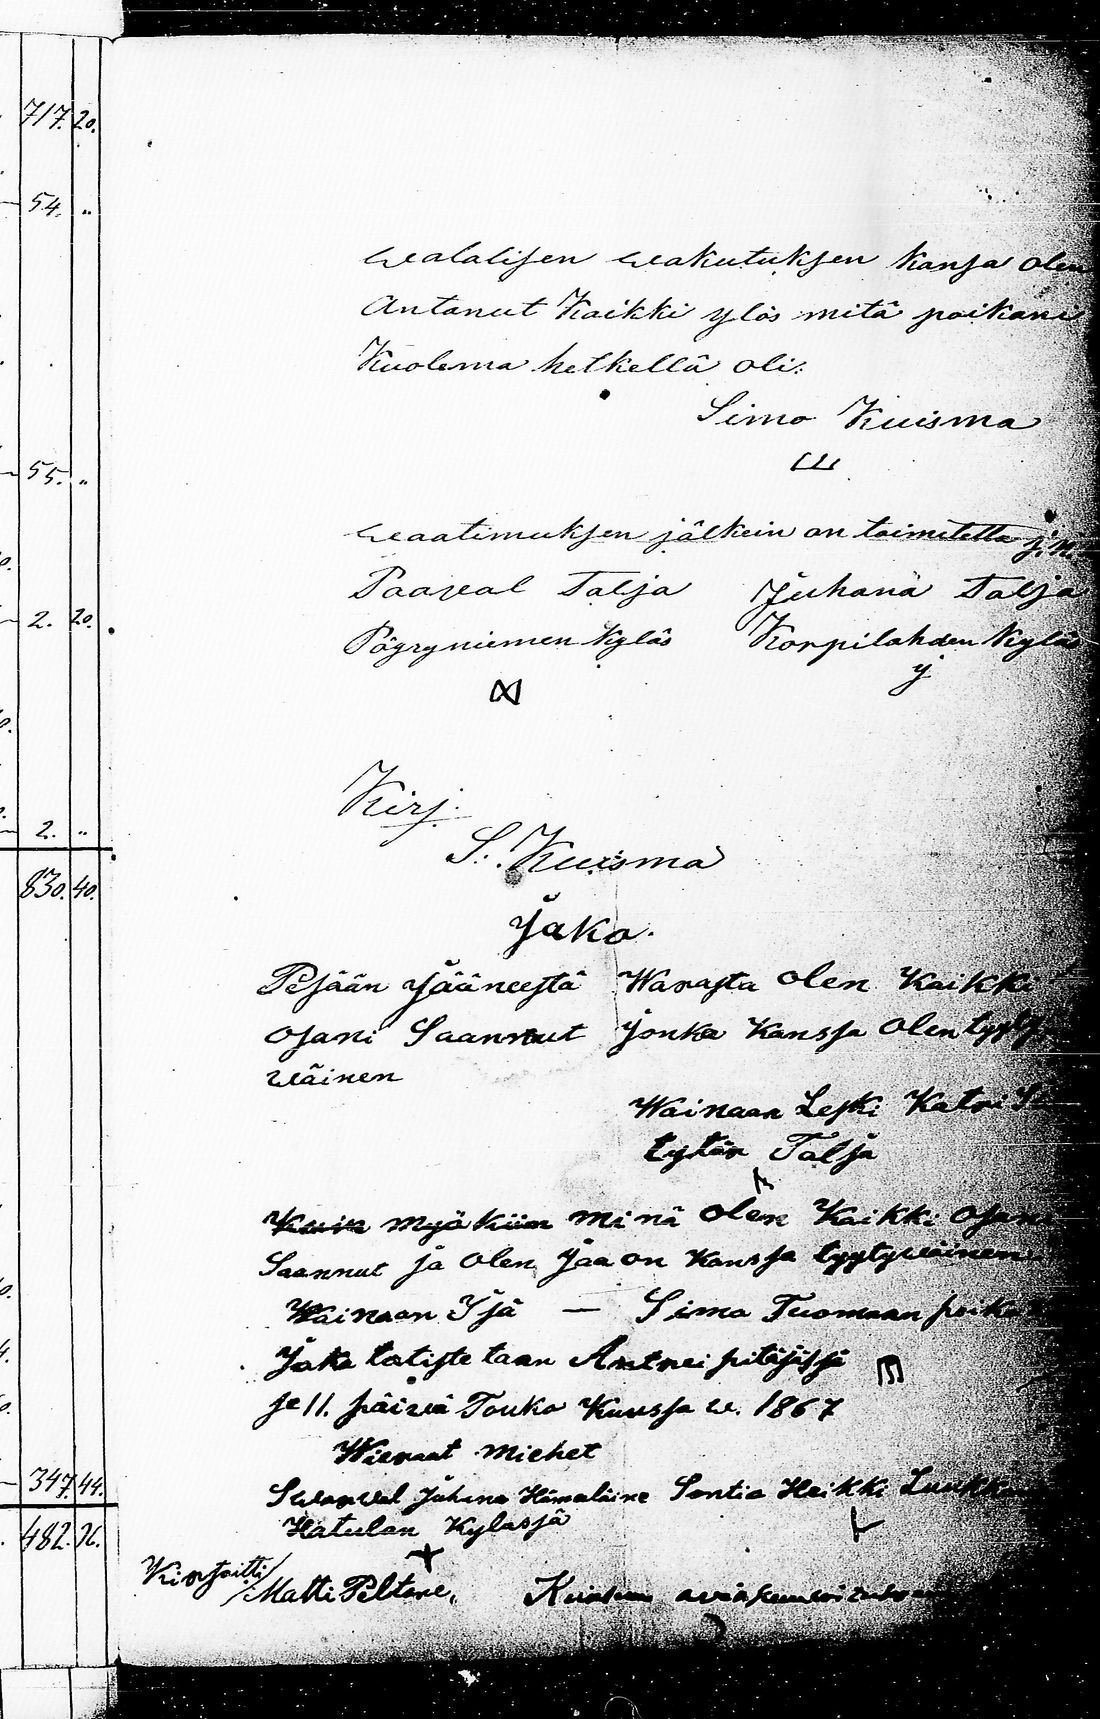 717. 20.
54. "
55. "
2. 20.
2. "
830. 40.
347. 44.
482. 76.
walalisen wakutuksen kansa olen
Antanut Kaikki ylös mitä poikani
Kuolema hetkellä oli.
Simo Kuisma
waatimuksen jälkein on toimitettu
Paaval Talja Juhana Talja
Pögryniemen Kyläs Korpilahden Kyläs
Kirj.
S. Kuisma
Jako.
Pesään Jääneestä Warasta olen Kaikki
Osani Saannut Jonka Kanssa Olen
wäinen
Wainaan Leski Katri
tytär Talja
Kuin myö Kiin minä olen Kaikki Osani
Saannut ja Olen Jaaon Kanssa tyytywäinen
Wainaan Isä — Simo Tuomaan
Jako totistetaan Antrei pitäjässä
se 11. päiwä Touko Kuussa w. 1867
Wieraat miehet
Juhana Hämäläine Heikki
Hatulan Kylässä
Kirjoitti
Matti Peltone.